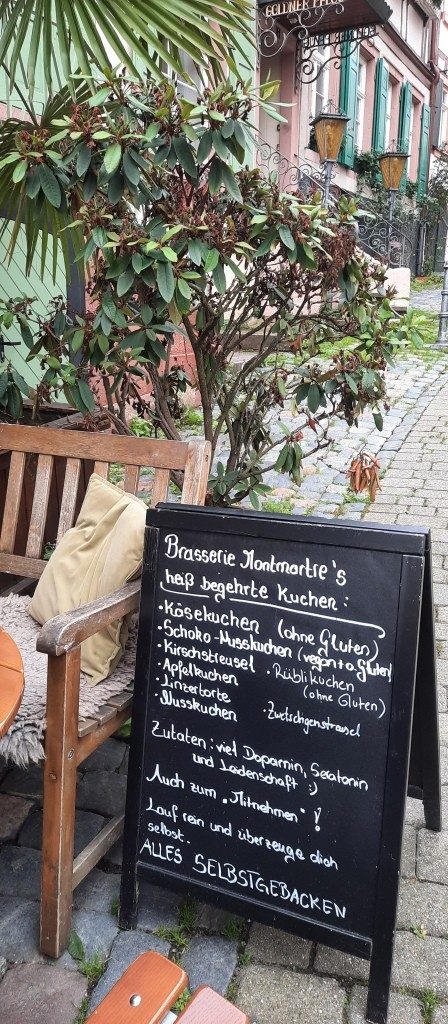 GOLDNER
Brasserie Montmartre's
heiß begehrte Kuchen:
• Käsekuchen (ohne Gluten)
• Schoko-Nusskuchen (vegan+o.Gluten)
• Kirschstreusel
• Apfelkuchen • Rüblikuchen
• Linzertorte (ohne Gluten)
• Nusskuchen • Zwetschgenstreusel
Zutaten: viel Dopamin, Seratonin
und Leidenschaft :)
Auch zum „Mitnehmen"!
Lauf rein und überzeuge dich
selbst.
ALLES SELBSTGEBACKEN